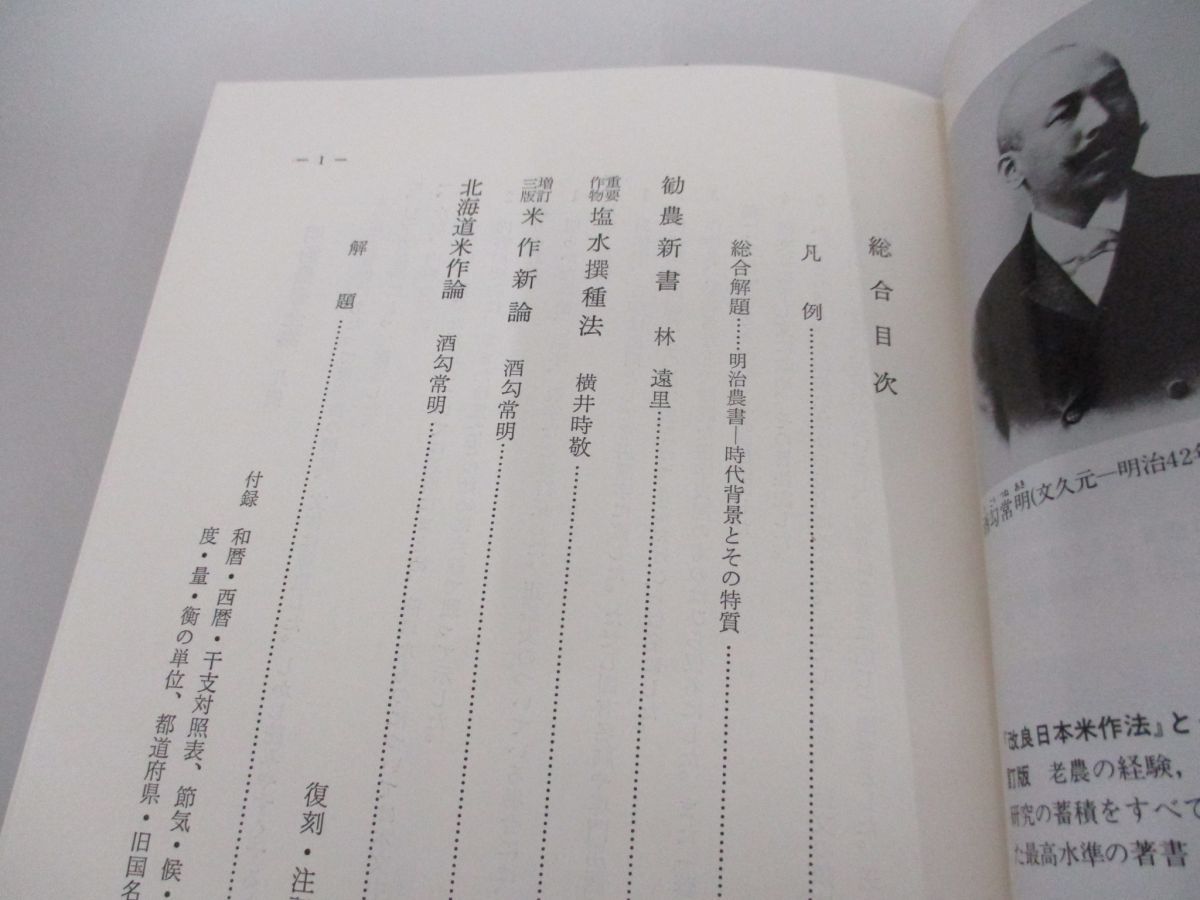 総合目次
凡例
総合解題……明治農書―時代背景とその特質
勧農新書 林遠里
重要作物 塩水撰種法 横井時敬
増訂三版 米作新論 酒勾常明
北海道米作論 酒勾常明
解題
復刻・注
付録 和暦・西暦・干支対照表、節気・候・
度・量・衡の単位、都道府県・旧国名
― 1 ―
勾常明(文久元―明治42年
『改良日本米作法』と
訂版 老農の経験,
研究の蓄積をすべて
た最高水準の著書